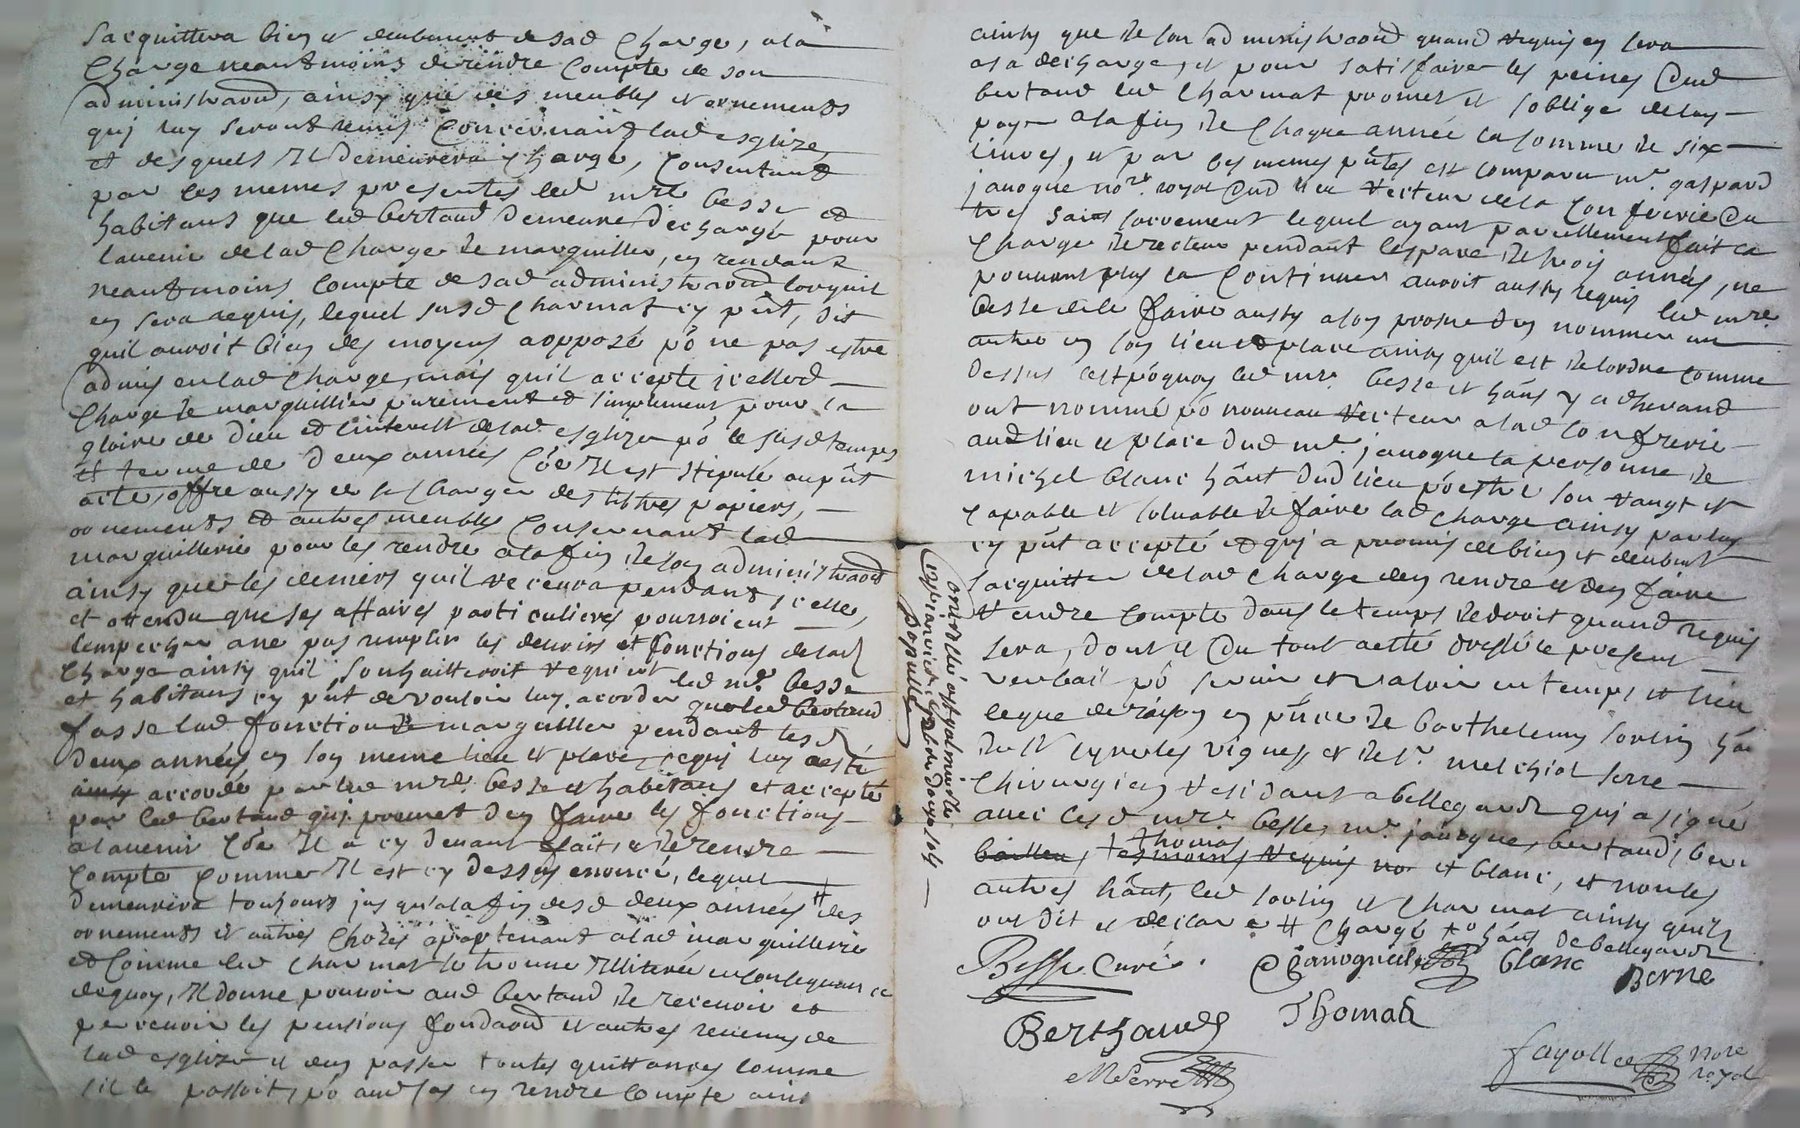 sacquittera bien et deubment de sad charge, a la
charge neantmoins de rendre compte de son
administraon, ainsy que des meubles et ornements
quj luy seront remis concernant lad esglize,
et desquels Il demeurera chargé, consentant
par ces memes presentes led mre besse et
habitans que led bertaud demeure decharge pour
lauenir de lad charge de marguiller, en rendant
neantmoins compte de sad administraon lorsquil
en sera requis, lequel susd charmat cy pnt, dit
quil auroit bien des moyens a opposé po ne pas estre
admis en lad charge, mais quil accepte jcelled
charge de marguillier purement et simplement pour la
gloire de Dieu et linterest de lad esglize po le susd temps
et terme de deux années co͂e Il est stipulé au pnt
acte, offre aussy de se charger des titres papiers,
ornements et autres meubles concernant lad
marguillerie pour les rendre a la fin de son administraon
ainsy que les deniers quil receura pendant jcelle,
et attendu que ses affaires particulieres pourroient
lempecher a ne pas remplir les deuoirs et fonctions de lad
charge ainsy quil souhaitteroit requiert led mre besse
et habitans cy pnt de vouloir luy acorder que led bertaud
fasse lad fonction de marguiller pendant lesd
deux années en son meme lieu et place, ce quj luy a esté
ainsy accordé par led mre besse et habitans et accepté
par led bertaud quj promet den faire les fonctions
a lauenir co͂e Il a cy deuant fait, et de rendre
compte comme Il est cy dessus enoncé, lequel
demeurera toujours jusqu'a la fin desd deux années # des
ornements et autres choses apartenant a lad marguillerie
et comme led charmat se trouue Illiteré en consequence
dequoy, Il donne pouuoir aud bertaud de receuoir et
perceuoir les pensions fondaons et autres reuenus de
lad esglize et den passer toutes quittances comme
sil le passoit, po aud cas en rendre compte ains
ainsy que de son administraon quand requis en sera
a sa decharge, et pour satisfaire les peines dud
bertaud led charmat promet et soblige de luy
payer a la fin de chaque année la somme de six
liures, et par ces memes pntes est comparu me. gaspard
janogue nore. royal dud lieu recteur de la confrerie du
tres saint sacrement lequel ayant pareillement fait la
charge de recteur pendant lespace de trois années, ne
pouuant plus la continuer auroit aussy requis led mre.
besse de le faire aussy a son prosne den nommer un
autre en son lieu et place ainsy quil est de lordre comme
dessus cest poquoy led mre. besse et ha͂ns y acheuand
ont nommé po nouueau recteur a lad confrerie
aud lieu et place dud me. janogue la personne de
michel blanc ha͂nt dud lieu po estre son rangt et
capable et soluable de faire lad charge ainsy par luy
cy pnt accepté et quj a promis de bien et deubmt
sacquitter de lad charge den rendre et den faire
rendre compte dans le temps de droit quand requis
sera, dont et du tout a esté dressé le present
verbail po seruir et valoir en temps et lieu
de st cyr les vignes, et de sr. melchiol serre
chirurgien residant a bellegarde qui a signé
auec lesd mre. besse, me. janogue, bertaud, bern
thomas
et blanc, et non les
autres ha͂nt, led sorlin et charmat ainsy quils
ont dit et declare # chargé to ha͂ns de bellegarde
Besse Curé.
Janogue
blanc
Berne
Berthaud
Thomas
MSerre
fayolle
nore
royal